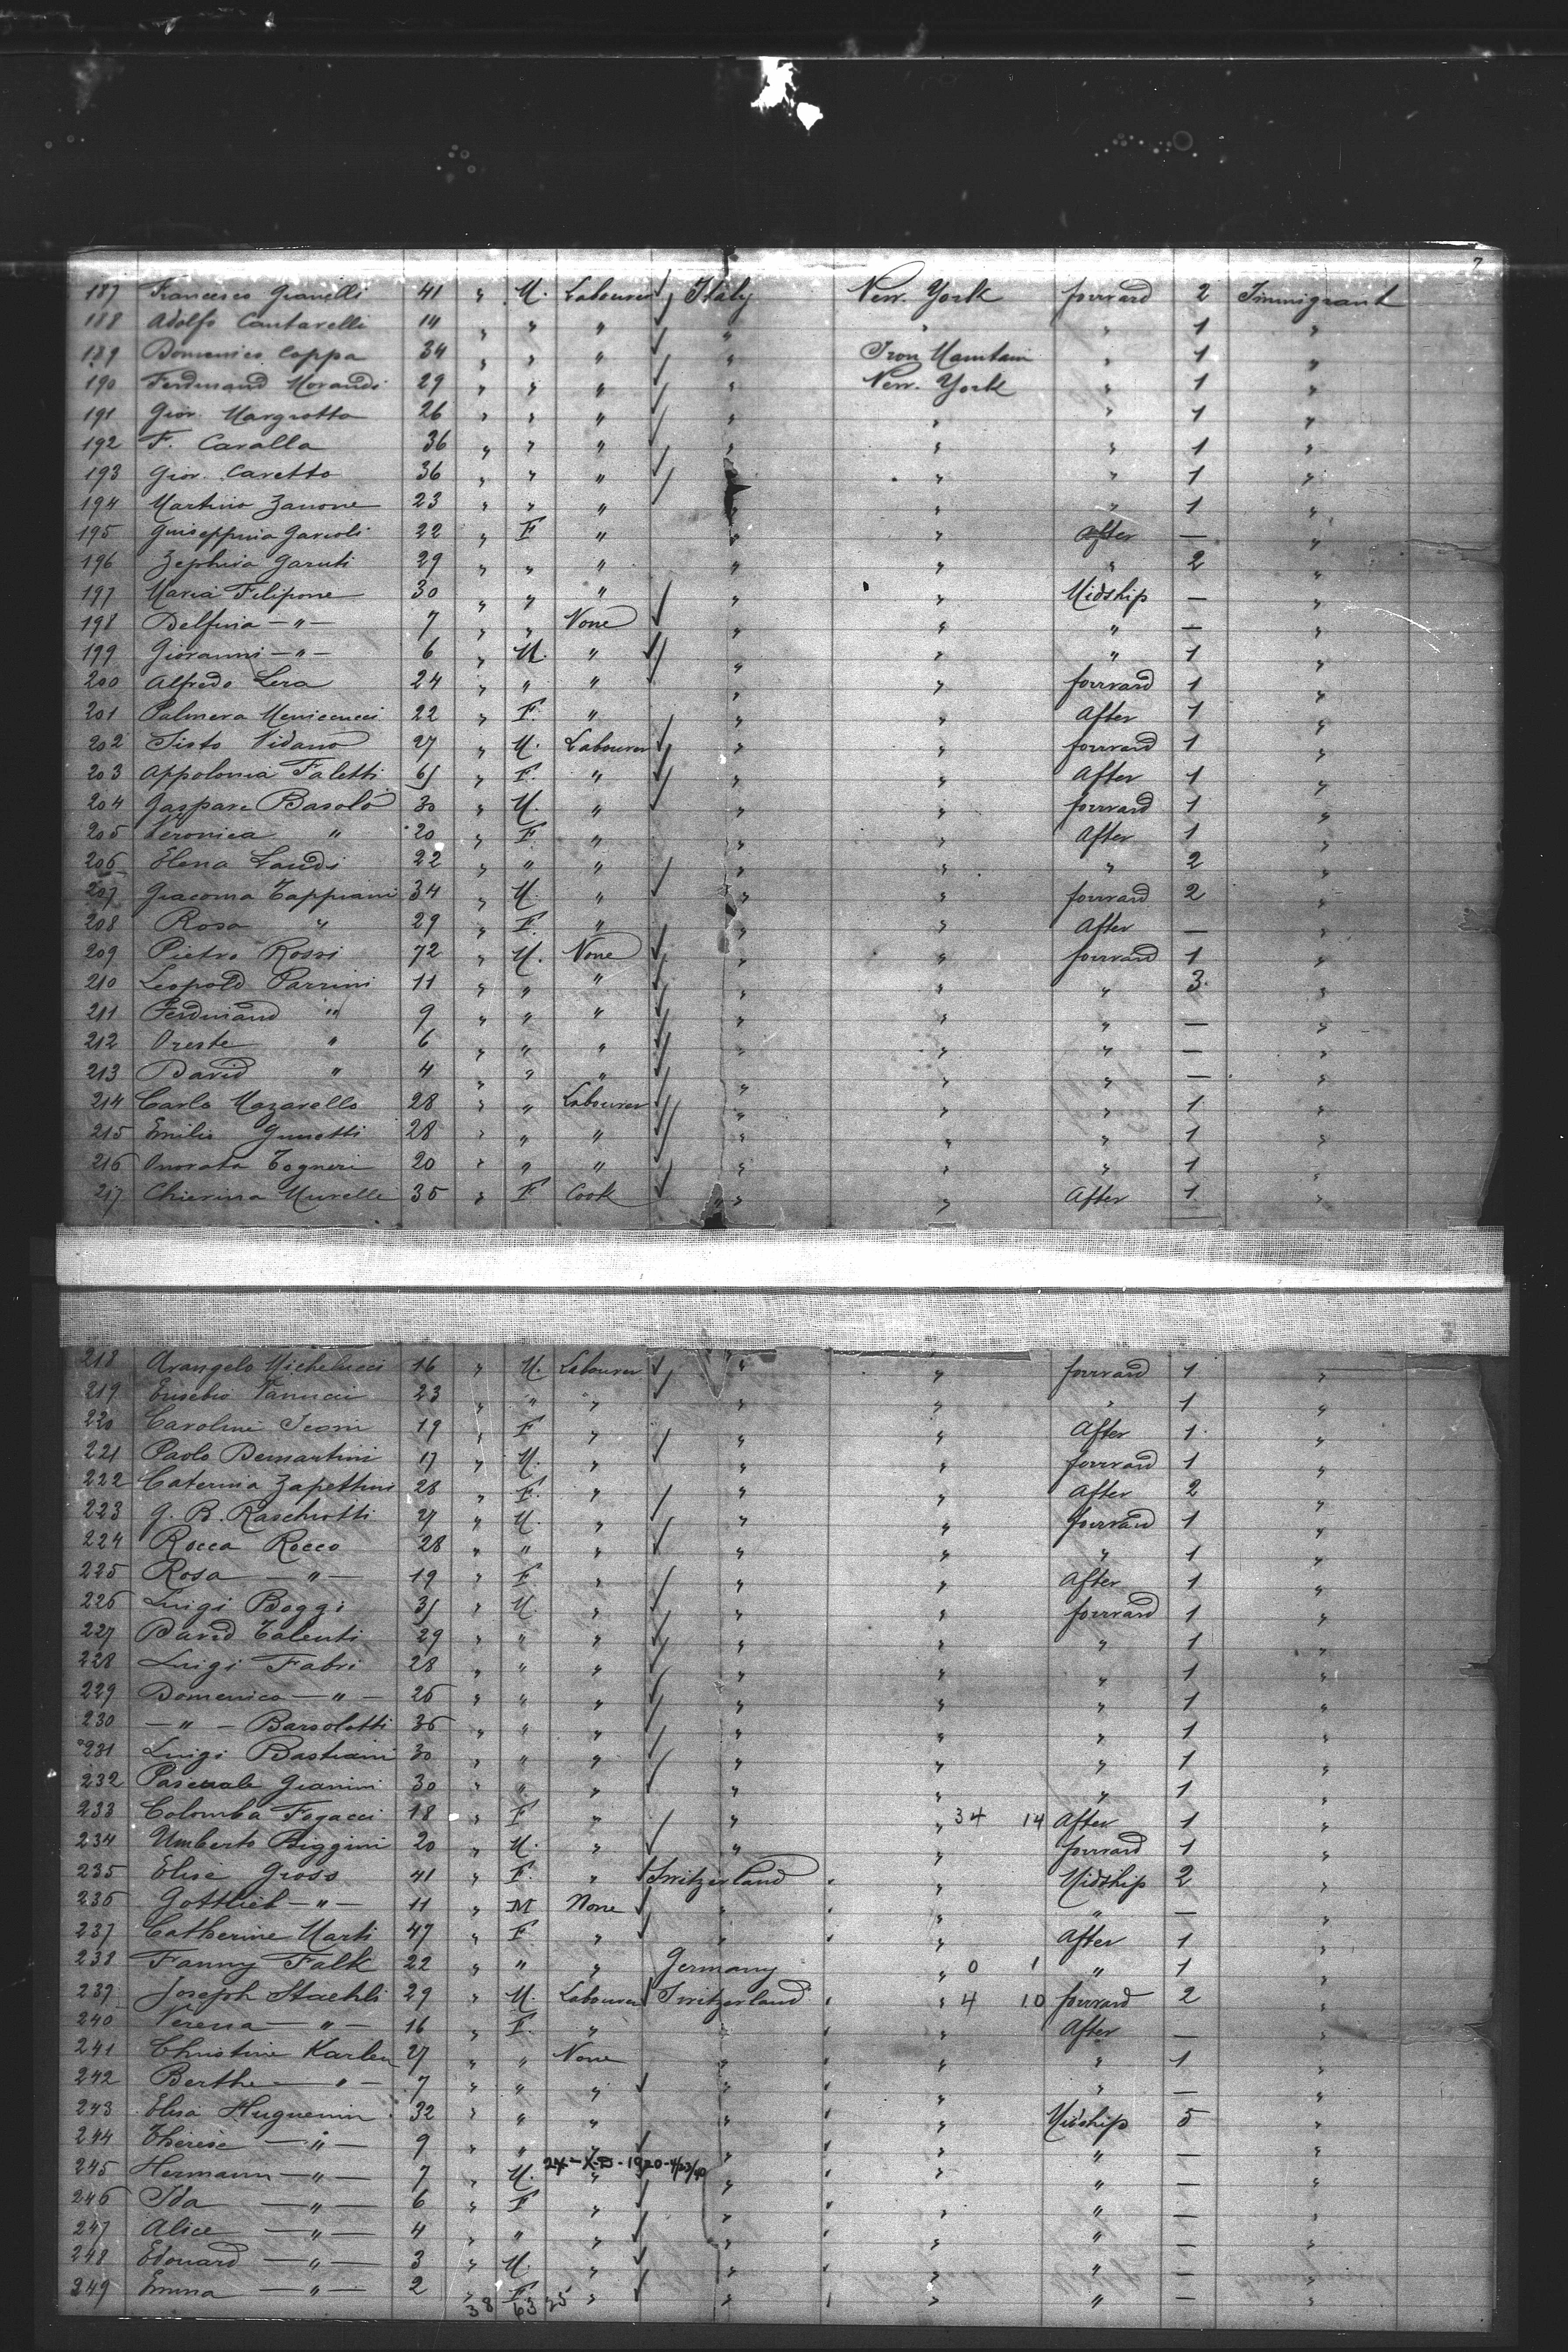 7
187 Francesco Granelli 41 " M. Labourer Italy New. York forward 2 Immigrant
188 Adolfo Cantarelli 14 " " " " " " 1 "
189 Domenico Coppa 34 " " " " Iron Mountain " 1 "
190 Ferdinand Morandi 29 " " " " New. York " 1 "
191 Giov. Margiotta 26 " " " " " " 1 "
192 F. Cavalla 36 " " " " " " 1 "
193 Giov. Caretto 36 " " " " " " 1 "
194 Martino Zanone 23 " " " " " " 1 "
195 Guiseppina Garioli 22 " F " " " After — "
196 Zephira Garuti 29 " " " " " " 2 "
197 Maria Filipone 30 " " " " " Midship — "
198 Delfina — " — 7 " " None " " " — "
199 Giovanni — " — 6 " M. " " " " 1 "
200 Alfredo Lera 24 " " " " " forward 1 "
201 Palmera Menicucci 22 " F. " " " After 1 "
202 Sisto Vidano 27 " M. Labourer " " forward 1 "
203 Appolonia Faletti " F. " " " After 1 "
204 Gaspare Basolo 30 " M. " " " forward 1 "
205 Veronica " 20 " F. " " " After 1 "
206 Elena Landi 22 " " " " " " 2 "
207 Giacoma Tappiani 34 " M. " " " forward 2 "
208 Rosa " 29 " F. " " " After — "
209 Pietro Rossi 72 " M. None " " forward 1 "
210 Leopold Parrini 11 " " " " " " 3 "
211 Ferdinand " 9 " " " " " " — "
212 Oreste " 6 " " " " " " — "
213 David " 4 " " " " " " — "
214 Carlo Mazarello 28 " " Labourer " " " 1 "
215 Emilio 28 " " " " " " 1 "
216 Onorata Togneri 20 " " " " " " 1 "
217 Chierina Murelli 35 " F Cook " " After 1 "
218 Arangelo Michelucci 16 " M. Labourer " " forward 1 "
219 Eusebio Vanucci 23 " " " " " " 1 "
220 Caroline 19 " F " " " After 1 "
221 Paolo Bernartini 17 " M. " " " forward 1 "
222 Caterina Zapettini 28 " F. " " " After 2 "
223 G. B. Raschiotti 27 " M. " " " forward 1 "
224 Rocca Rocco 28 " " " " " " 1 "
225 Rosa — " — 19 " F. " " " After 1 "
226 Luigi Boggi " M. " " " forward 1 "
227 David Talenti 29 " " " " " " 1 "
228 Luigi Fabri 28 " " " " " " 1 "
229 Domenico — " — 26 " " " " " " 1 "
230 — " — Barsolotti 36 " " " " " " 1 "
231 Luigi Bastiani 30 " " " " " " 1 "
232 Pascuale Gianini 30 " " " " " " 1 "
233 Colomba Fogacci 18 " F " " " 34 14 After 1 "
234 Umberto Biggini 20 " M. " " " forward 1 "
235 Elise Gross 41 " F. " Switzerland " Midship 2 "
236 Gottlieb — " — 11 " M None " " " — "
237 Catherine Marti 47 " F. " " " After 1 "
238 Fanny Falk 22 " " " Germany " 0 1 " 1 "
239 Joseph Staehli 29 " M. Labourer Switzerland " 4 10 forward 2 "
240 Verena — " — 16 " F. " " " After — "
241 Christine Karlen 27 " " None " " " 1 "
242 Berthe — " — 7 " " " " " " — "
243 Elisa Huguenin 32 " " " " " Midship 5 "
244 Thérèse — " — 9 " " " " " " — "
245 Hermann — " — 7 " M. " " " " — "
246 Ida — " — 6 " F " " " " — "
247 Alice — " — 4 " " " " " " — "
248 Edouard — " — 3 " M. " " " " — "
249 Emma — " — 2 " F. " " " " — "
38 63 25